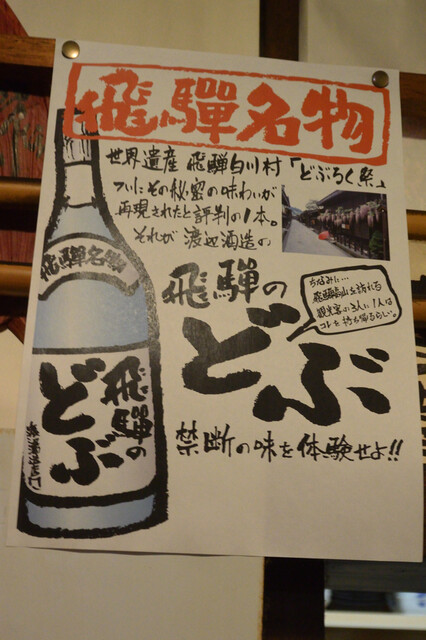 飛騨名物
世界遺産 飛騨白川村「どぶろく祭」
ついにその秘蜜の味わいが
再現されたと評判の1本。
それが渡辺酒造の
飛騨の
どぶ
ちなみに…
飛騨高山を訪れる
観光客の3人に1人は
コレを持ち帰るらしい。
禁断の味を体験せよ!!
飛騨名物
飛騨の
どぶ